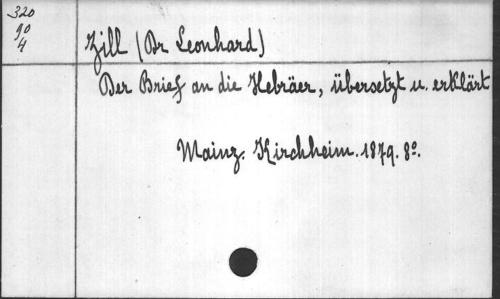 320
90
4
Zill (Dr Leonhard)
Der Brief an die Hebräer, übersetzt u. erklärt
Mainz. Kirchheim. 1879. 8º.